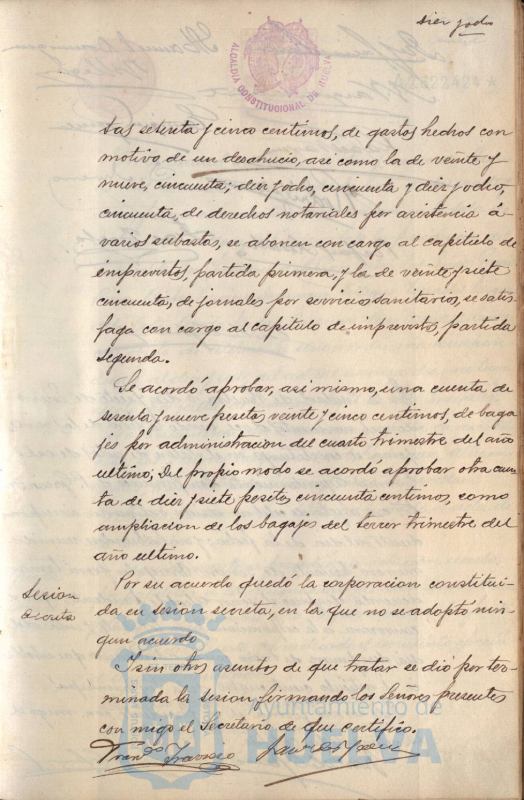 Diez y ocho
ALCALDIA CONSTITUCIONAL DE HUELVA
tas setenta y cinco centimos, de gastos hechos con
motivo de un desahucio, asi como la de veinte y
nueve, cincuenta; diez y ocho, cincuenta y diez y ocho,
cincuenta, de derechos notariales por asistencia á
varios subastas, se abonen con cargo al capitulo de
imprevistos, partida primera, y la de veinte y siete
cincuenta, de jornales por servicios sanitarios, se satis-
faga con cargo al capitulo de imprevistos, partida
segunda.
Se acordó aprobar, asi mismo, una cuenta de
sesenta y nueve pesetas veinte y cinco centimos, de baga
jes por administracion del cuarto trimestre del año
ultimo; Del propio modo se acordó aprobar otra cuen
ta de diez y siete pesetas cincuenta centimos, como
ampliacion de los bagajes del tercer trimestre del
año ultimo.
Sesion
secreta
Por su acuerdo quedó la corporacion constitui-
da en sesion secreta, en la que no se adoptó nin-
gun acuerdo
Y sin otros asuntos de que tratar se dió por ter-
minada la sesion firmando los Señores presentes
con migo el Secretario de que certifico.
Ayuntamiento de
HUELVA